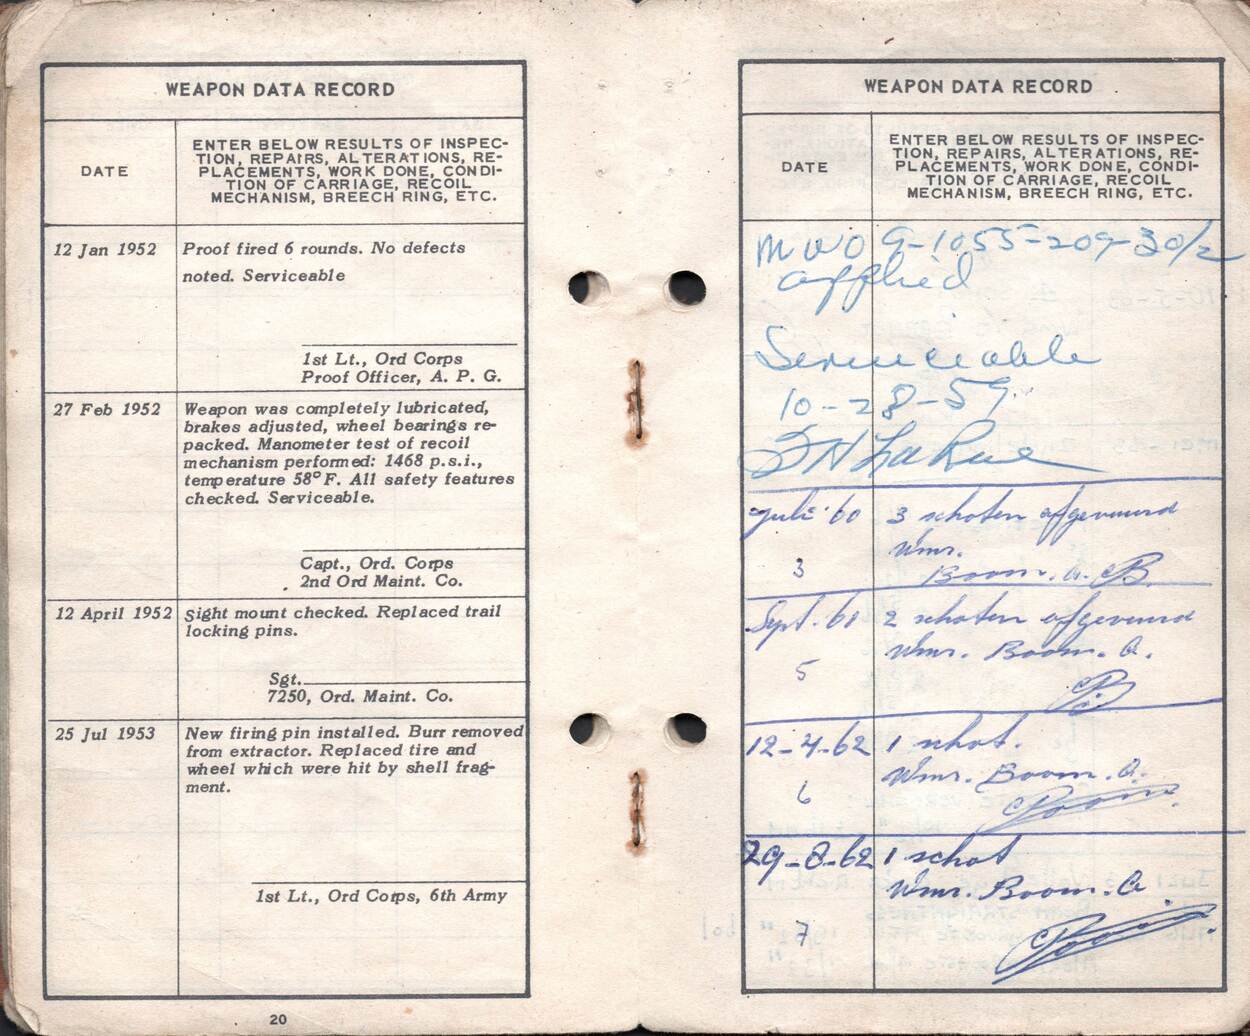 WEAPON DATA RECORD
DATE
ENTER BELOW RESULTS OF INSPEC-
TION, REPAIRS, ALTERATIONS, RE-
PLACEMENTS, WORK DONE, CONDI-
TION OF CARRIAGE, RECOIL
MECHANISM, BREECH RING, ETC.
12 Jan 1952 Proof fired 6 rounds. No defects
noted. Serviceable
1st Lt., Ord Corps
Proof Officer, A. P. G.
27 Feb 1952 Weapon was completely lubricated,
brakes adjusted, wheel bearings re-
packed. Manometer test of recoil
mechanism performed: 1468 p.s.i.,
temperature 58°F. All safety features
checked. Serviceable.
Capt., Ord. Corps
2nd Ord Maint. Co.
12 April 1952 Sight mount checked. Replaced trail
locking pins.
Sgt.
7250, Ord. Maint. Co.
25 Jul 1953 New firing pin installed. Burr removed
from extractor. Replaced tire and
wheel which were hit by shell frag-
ment.
1st Lt., Ord Corps, 6th Army
20
WEAPON DATA RECORD
DATE
ENTER BELOW RESULTS OF INSPEC-
TION, REPAIRS, ALTERATIONS, RE-
PLACEMENTS, WORK DONE, CONDI-
TION OF CARRIAGE, RECOIL
MECHANISM, BREECH RING, ETC.
MWO 9-1055-209-30/2
applied
Serviceable
10-28-59
LaRue
Juli '60 3 schoten afgevuurd
Wmr.
3 Boom. A.
Sept. 60 2 schoten afgevuurd
Wmr. Boom. A.
5
12-4-62 1 schot.
Wmr. Boom. A.
6
29-8-62 1 schot
Wmr. Boom. A
7